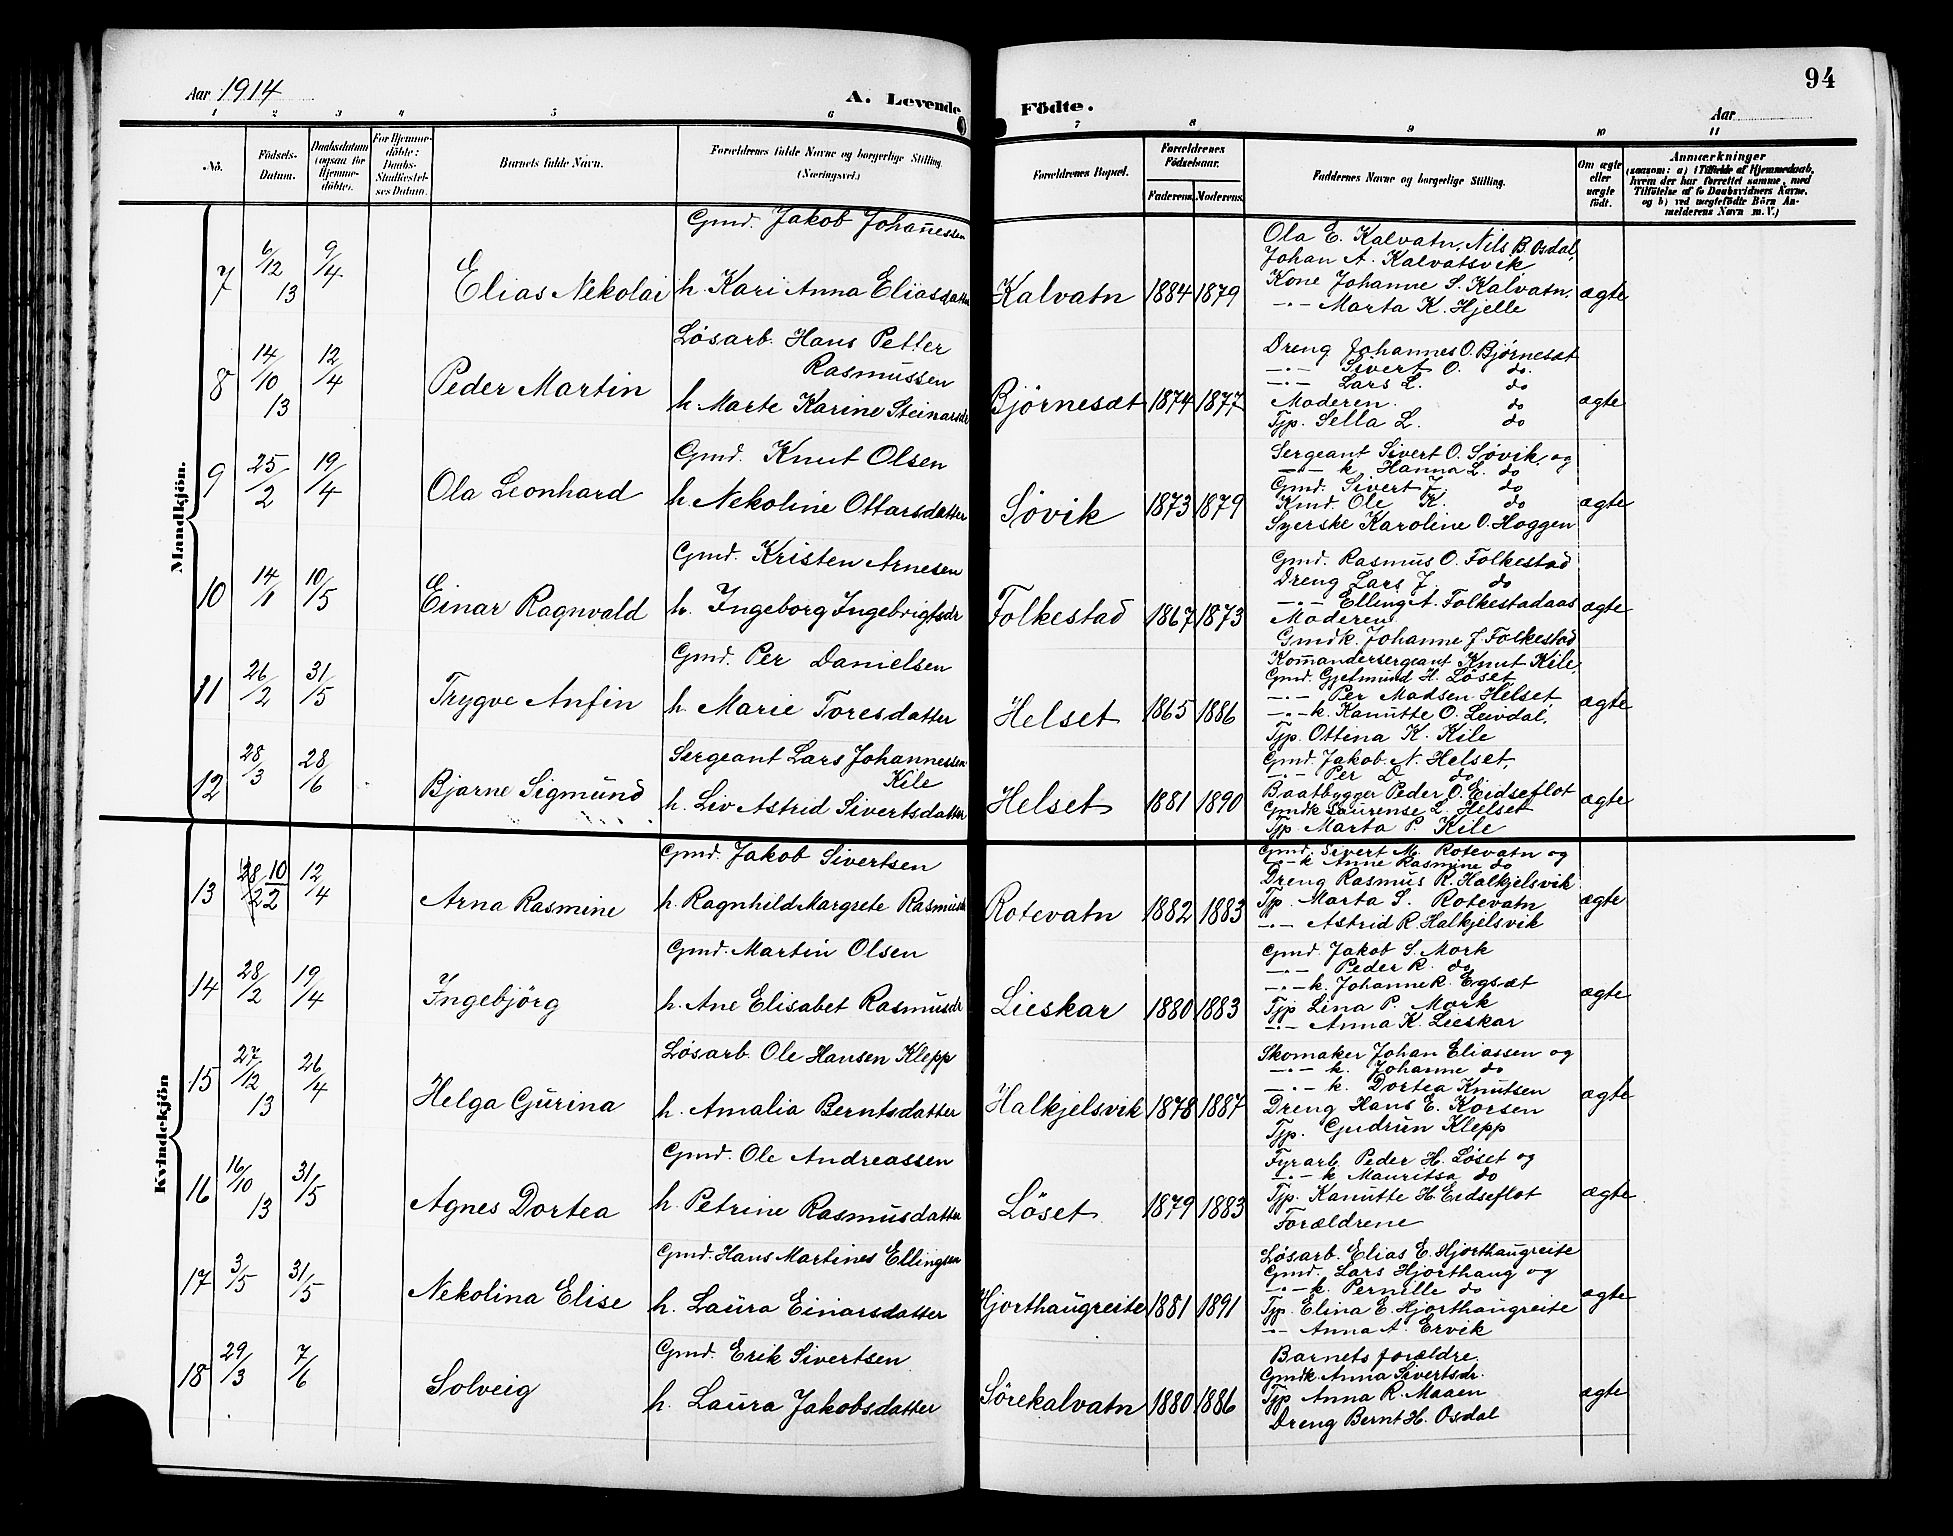 Aar 1914
A. Levende Födte.
94
Aar
1 2 3 4 5 6 7 8 9 10 11
No.
Födsels-Datum.
Daabsdatum (ogsaa for Hjemme-döbte).
For Hjemme-döbte: Daabs-Stadfæstel-ses Datum.
Barnets fulde Navn.
Forældrenes fulde Navne og borgerlige Stilling. (Næringsvei.)
Forældrenes Bopæl.
Forældrenes Födselsaar.
Faderens. Moderens.
Faddernes Navne og borgerlige Stilling.
Om ægte eller uægte födt.
Anmærkninger
(saasom: a) i Tilfælde af Hjemmedaab, hvem der har forrettet samme, med Tilföielse af to Daabsvidners Navne, og b) ved uægtefödte Börn An-melderens Navn m. V.)
Mandkjön.
7 6/12 13 9/4 Elias Nekolai
Gmd. Jakob Johanessen
h. Kari Anna Eliasdatter
Kalvatn 1884 1879
Ola E. Kalvatn, Nils B. Osdal,
Johan A. Kalvatsvik
Kone Johanne S. Kalvatn,
-"- Marta K. Hjelle
ægte
8 14/10 13 12/4 Peder Martin
Løsarb. Hans Petter
Rasmussen
h. Marte Karine Steinarsdr
Bjørnesæt 1874 1877
Dreng Johannes O. Bjørnesæt
-"- Sivert O. do.
-"- Lars L. do
Moderen. do
Tjp. Sella L. do
ægte
9 25/2 19/4 Ola Leonhard
Gmd. Knut Olsen
h. Nekoline Ottarsdatter
Søvik 1873 1879
Sergeant Sivert O. Søvik, og
-"- k. Hanna L. do
Gmd. Sivert J. do
Kmd. Ole K. do
Syerske Karoline O. Hoggen
ægte
10 14/1 10/5 Einar Ragnvald
Gmd. Kristen Arnesen
h. Ingeborg Ingebrigtsdr
Folkestad 1867 1873
Gmd. Rasmus O. Folkestad
Dreng Lars J. do
-"- Elling A. Folkestadaas
Moderen
Gmdk. Johanne J. Folkestad
ægte
11 26/2 31/5 Trygve Anfin
Gmd. Per Danielsen
h. Marie Toresdatter
Helset 1865 1886
Kommandersergeant Knut Kile,
Gmd. Gjelmund H. Løset,
-"- Per Madsen Helset,
-"- k. Kanutte O. Leivdal,
Tjp. Ottina K. Kile
ægte
12 28/3 28/6 Bjarne Sigmund
Sergeant Lars Johannessen
Kile
h. Liv Astrid Sivertsdatter
Helset 1881 1890
Gmd. Jakob N. Helset,
-"- Per D. do
Baatbygger Peder O. Eidseflot
Gmdk Laurense L. Helset
Tjp. Marta P. Kile
ægte
Kvindekjön
13 10/2 12/4 Arna Rasmine
Gmd. Jakob Sivertsen
h. Ragnhild Margrete Rasmusdr
Rotevatn 1882 1883
Gmd. Sivert M. Rotevatn og
-"- k Anne Rasmine do
Dreng Rasmus R. Halkjelsvik
Tjp. Marta S. Rotevatn
-"- Astrid R. Halkjelsvik
ægte
14 28/2 19/4 Ingebjörg
Gmd. Martin Olsen
h. Ane Elisabet Rasmusdr
Lieskar 1880 1883
Gmd. Jakob S. Mork
-"- Peder R. do
-"- k. Johanne R. Egsæt
Tjp Lina P. Mork
-"- Anna K. Lieskar
ægte
15 27/12 13 26/4 Helga Gurina
Løsarb. Ole Hansen Klepp
h. Amalia Berntsdatter
Halkjelsvik 1878 1887
Skomaker Johan Eliassen og
-"- k. Johanne do
-"- k. Dortea Knutsen
Dreng Hans E. Korsen
Tjp. Gudrun Klepp
ægte
16 16/10 13 31/5 Agnes Dortea
Gmd. Ole Andreassen
h. Petrine Rasmusdatter
Löset 1879 1883
Fyrarb. Peder H. Løset og
-"- k Mauritsa do
Tjp. Kanutte H. Eidseflot
Forældrene
ægte
17 3/5 31/5 Nekolina Elise
Gmd. Hans Martines Ellingsen
h. Laura Einarsdatter
Hjorthaugreite 1881 1891
Løsarb. Elias E. Hjorthaugreite
Gmd. Lars Hjorthaug og
-"- k. Pernille do
Tjp. Elina E. Hjorthaugreite
-"- Anna A. Ervik
ægte
18 29/3 7/6 Solveig
Gmd. Erik Sivertsen
h. Laura Jakobsdatter
Sörekalvatn 1880 1886
Barnets forældre.
Gmdk. Anna Sivertsdr.
Tjp Anna R. Maaen
Dreng Bernt H. Osdal
ægte